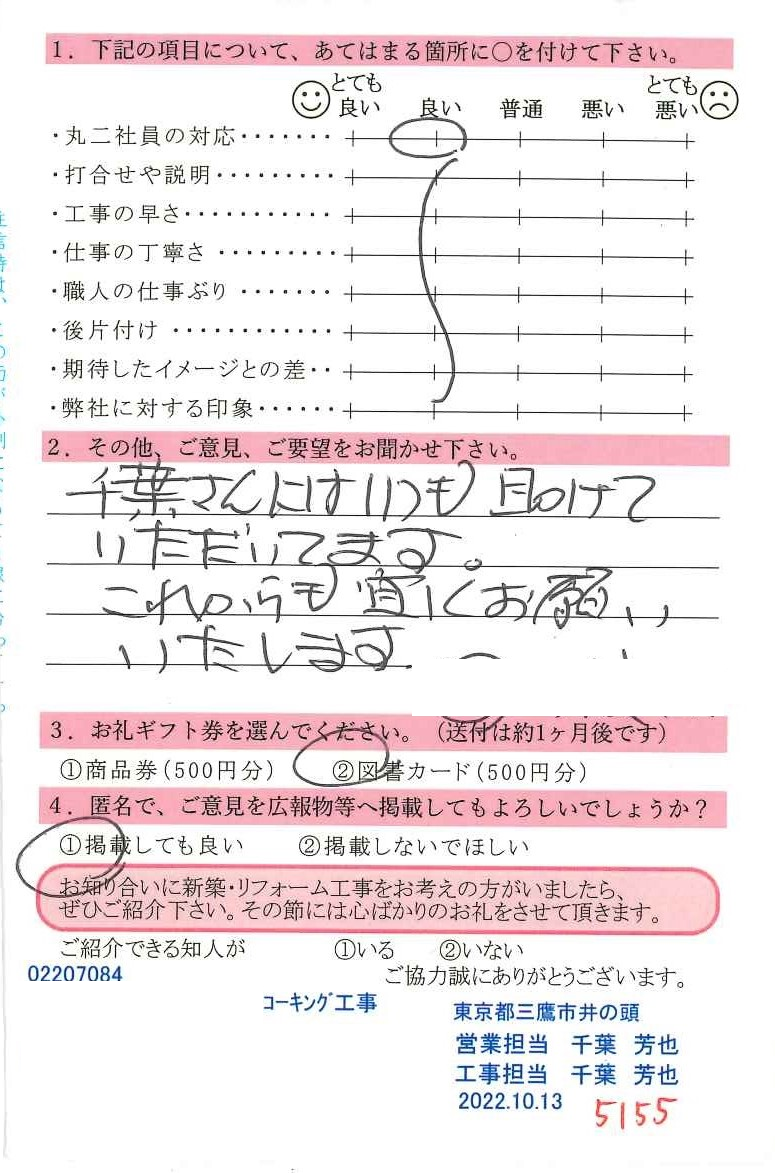 1. 下記の項目について、あてはまる箇所に○を付けて下さい。
とても良い 良い 普通 悪い とても悪い
・丸二社員の対応・・・・・・・
・打合せや説明・・・・・・・・・
・工事の早さ・・・・・・・・・・・
・仕事の丁寧さ・・・・・・・・・
・職人の仕事ぶり・・・・・・・
・後片付け・・・・・・・・・・・・
・期待したイメージとの差・・
・弊社に対する印象・・・・・・
2. その他、ご意見、ご要望をお聞かせ下さい。
千葉さんにはいつも助けて
いただいてます。
これからも宜しくお願い
いたします。
3. お礼ギフト券を選んでください。（送付は約1ヶ月後です）
①商品券(500円分) ②図書カード(500円分)
4. 匿名で、ご意見を広報物等へ掲載してもよろしいでしょうか？
①掲載しても良い ②掲載しないでほしい
お知り合いに新築・リフォーム工事をお考えの方がいましたら、
ぜひご紹介下さい。その節には心ばかりのお礼をさせて頂きます。
ご紹介できる知人が ①いる ②いない
02207084
ご協力誠にありがとうございます。
コーキング工事
東京都三鷹市井の頭
営業担当 千葉 芳也
工事担当 千葉 芳也
2022.10.13
5155